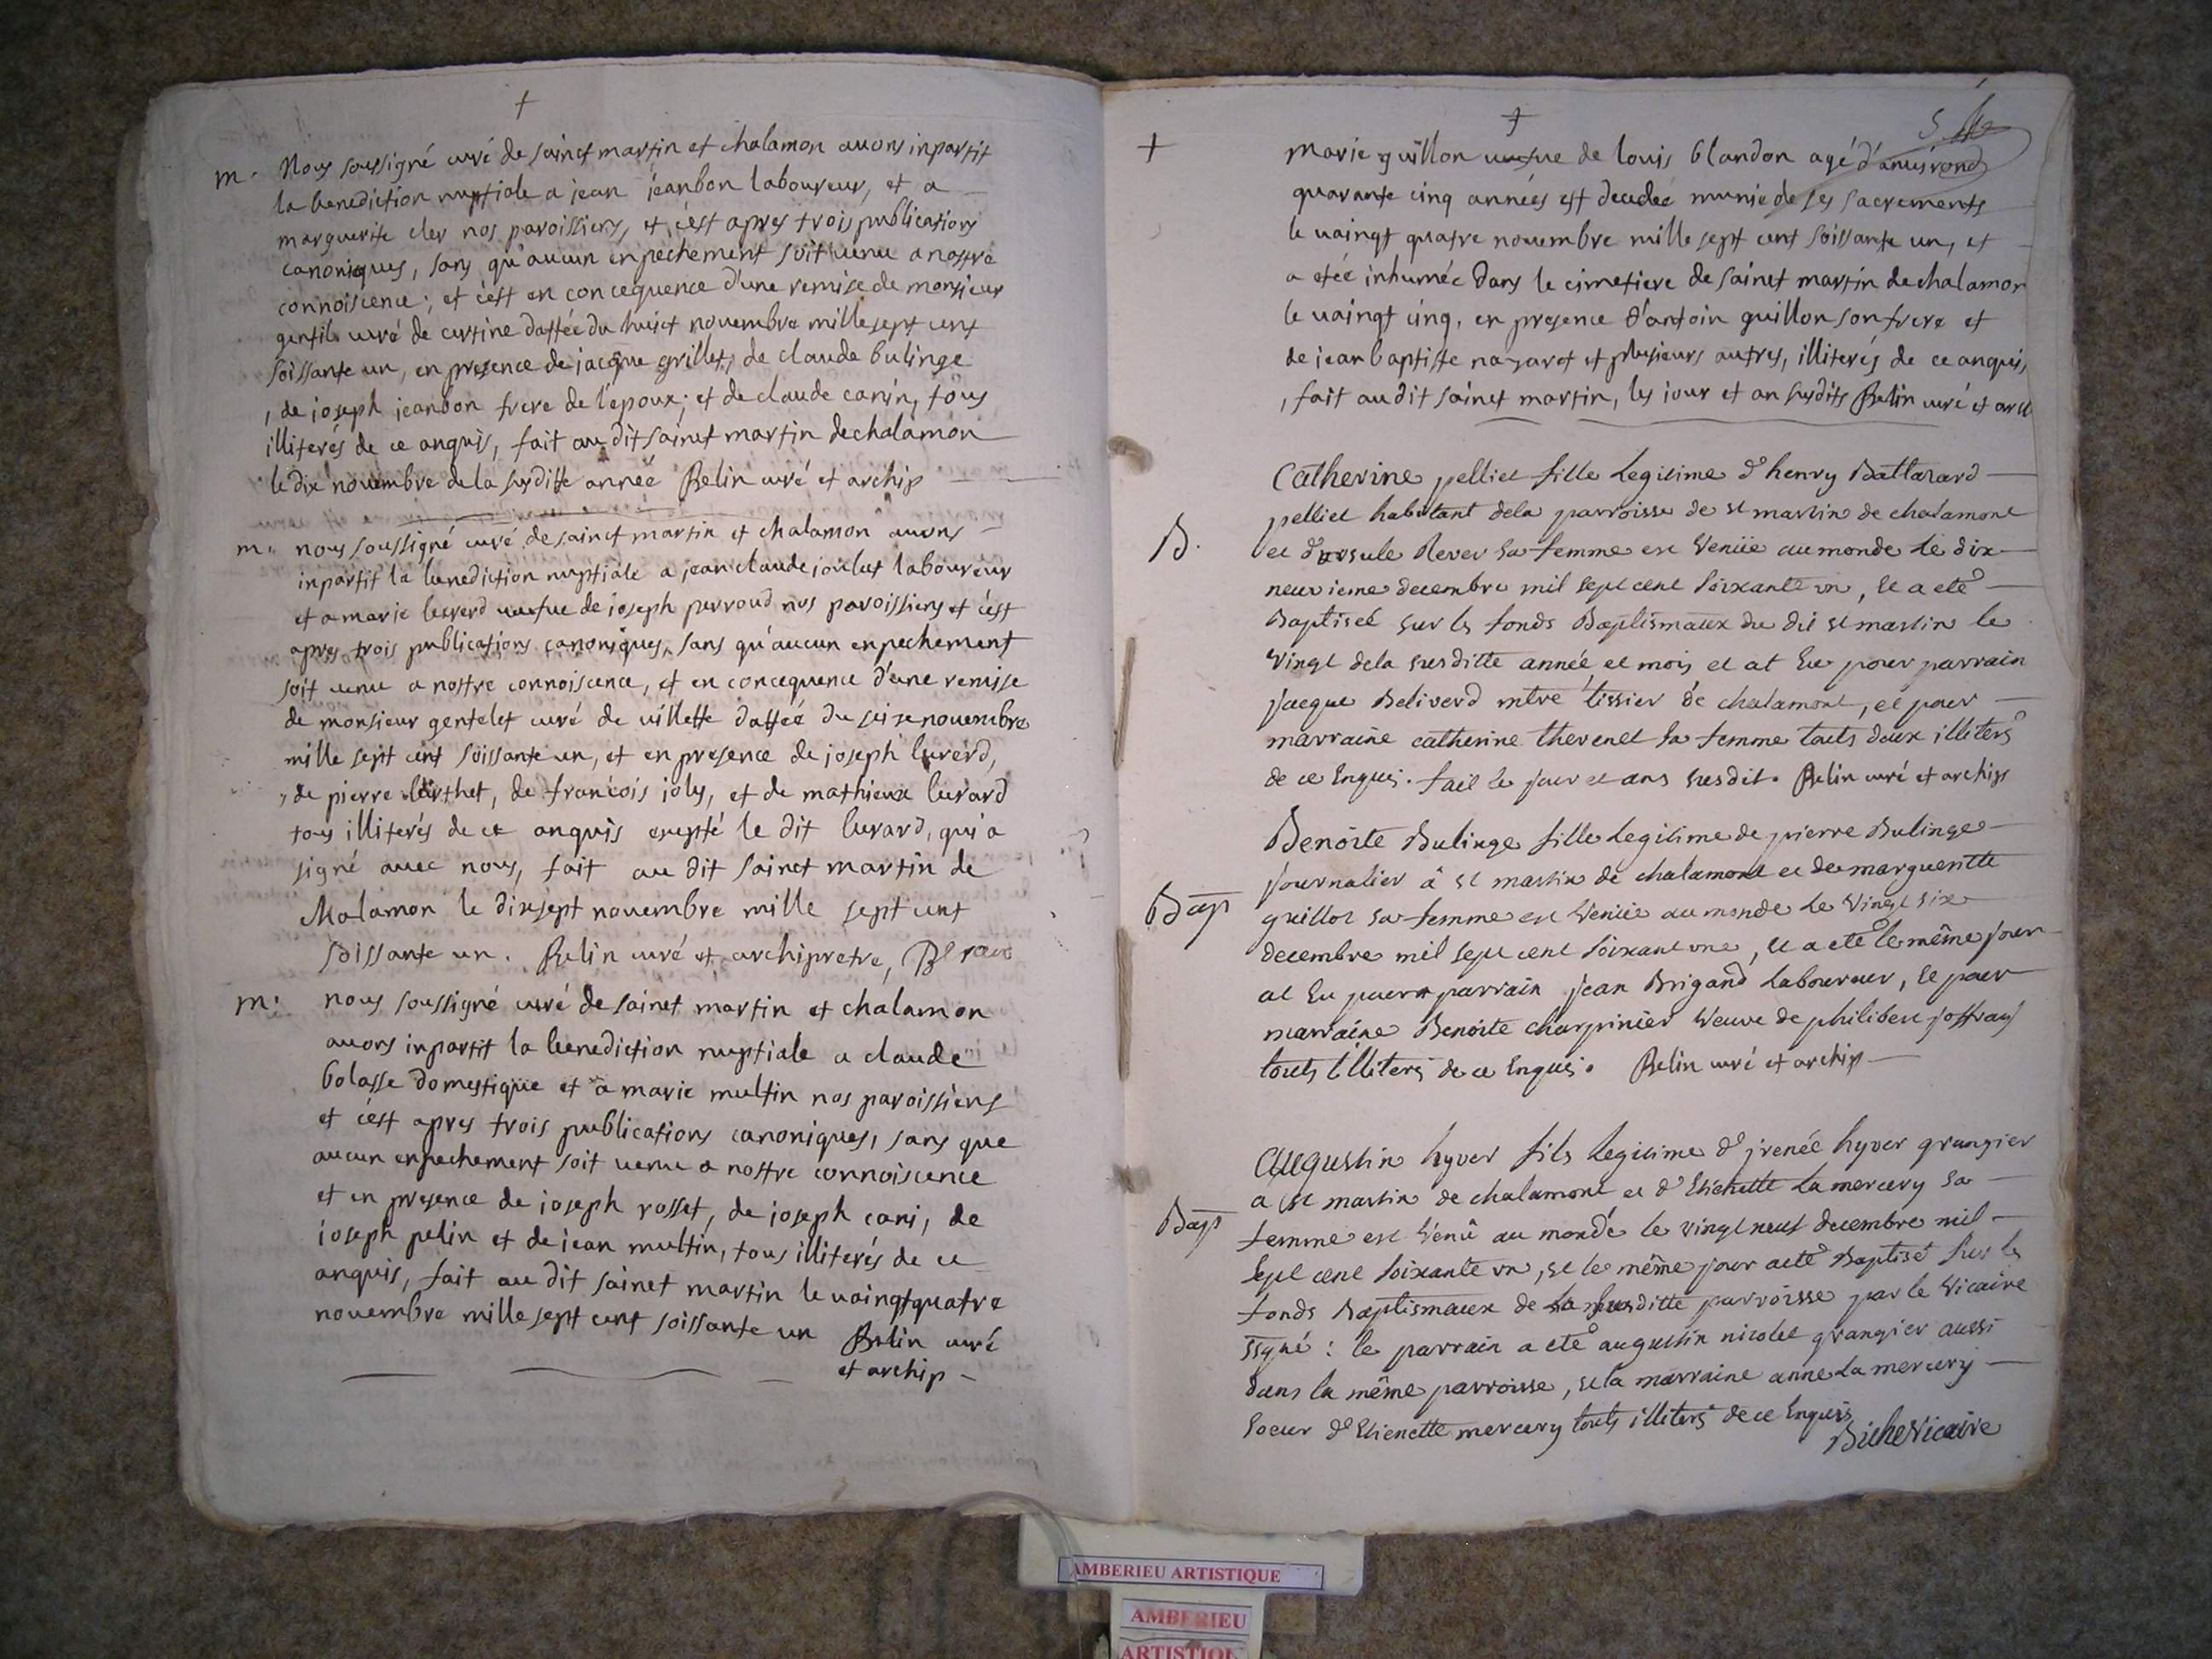 +
m. Nous soussigné curé de sainct martin et chalamon avons inpartit
la benediction nuptiale a jean jeanbon laboureur, et a
marguerite cler nos paroissiens, et c'est apres trois publications
canoniques, sans qu'aucun enpechement soit venu a nostre
connoiscence; et c'est en concequence d'une remise de monsieur
gentil curé de certine dattée du huict novembre mille sept cent
soissante un, en presence de jacque grillet, de claude bulinge
, de joseph jeanbon frere de l'epoux; et de claude canin, tous
illiterés de ce anquis, fait au dit sainct martin de chalamon
le dix novembre de la susditte année Belin curé et archip
m. nous soussigné curé de sainct martin et chalamon avons
inpartit la benediction nuptiale a jean claude joulut laboureur
et a marie veufve de joseph perroud nos paroissiens et c'est
apres trois publications canoniques, sans qu'aucun enpechement
soit venu a nostre connoiscence, et en concequence d'une remise
de monsieur gentelet curé de villette dattée du seize novembre
mille sept cent soissante un, et en presence de joseph lurerd,
, de pierre de francois joly, et de mathieux lurard
tous illiterés de ce anquis excepté le dit lurard, qui a
signé avec nous, fait au dit sainct martin de
chalamon le dixsept novembre mille sept cent
soissante un. Belin curé et archipretre,
m: nous soussigné curé de sainct martin et chalamon
avons inpartit la benediction nuptiale a claude
bolasse domestique et a marie multin nos paroissiens
et c'est apres trois publications canoniques, sans que
aucun enpechement soit venu a nostre connoiscence
et en presence de joseph rosset, de joseph cani, de
joseph pelin et de jean multin, tous illiterés de ce
anquis, fait au dit sainct martin le vaingtquatre
novembre mille sept cent soissante un Belin curé
et archip
+
5
+ marie guillon veufve de louis blandon agé d'anvirond
quarante cinq années est decedée munie de ses sacrements
le vaingt quatre novembre mille sept cent soissante un, et
a etée inhumée dans le cimetiere de sainct martin de chalamon
le vaingt cinq, en presence d'antoin guillon son frere et
de jean baptiste nazaret et plusieurs autres, illiterés de ce anquis,
, fait au dit sainct martin, les jour et an susdits Belin curé et arch
Catherine pelliet fille Legitime d'henry Battarard
pelliet habitant dela parroisse de st martin de chalamont
B. et d'ursule Rever sa femme est Venüe au monde Le dix
neuvieme decembre mil sept cent soixante un, et a eté
Baptiseé sur les fonds Baptismaux du dit st martin le
Vingt dela susditte année et mois et at Eu pour parrain
jacque Beliverd mtre tissier de chalamont, et pour
marraine catherine thevenet sa femme touts deux illiters
de ce Enquis. fait le jour et ans susdit. Belin curé et archip
Benoite Bulinge fille Legitime de pierre Bulinge
journalier à st martin de chalamont et de margueritte
Bap guillot sa femme est Venüe au monde le Vingt six
decembre mil sept cent soixant une, et a eté le même jour
at Eu pour parrain jean Brigand Laboureur, et pour
marraine Benoite charpinier Veuve de philibert joffray
touts illiters de ce Enquis. Belin curé et archip
Augustin hyver fils Legitime d'jrenée hyver grangier
a st martin de chalamont et d'Etienette La mercery sa
Bap femme est Venû au monde le vingt neuf decembre mil
sept cent soixante un, et le même jour aeté Baptisé sur les
fonds Baptismaux de la susditte parroisse par le Vicaire
ssgné: le parrain a eté augustin nicolet grangier aussi
dans la même parroisse, et la marraine anne La mercery
soeur d'Etienette mercery touts illiters de ce Enquis
Biche Vicaire
AMBERIEU ARTISTIQUE
AMBERIEU